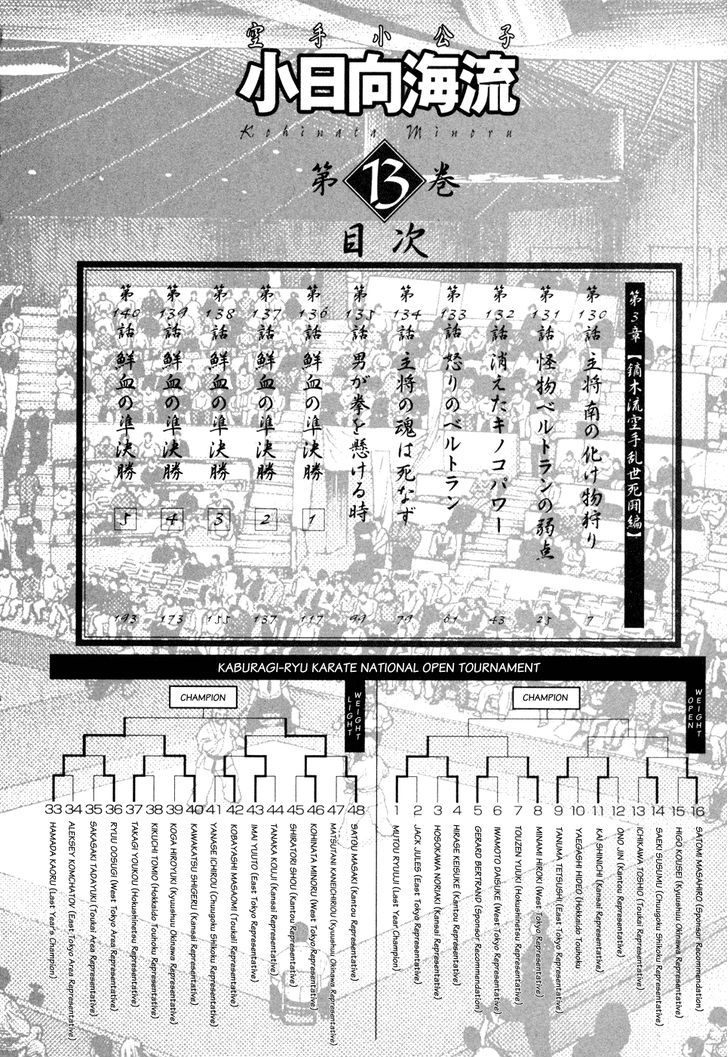 空手小公子
小日向海流
Kohinata Minoru
第13巻
目次
第3章【鏑木流空手乱世死闘編】
第130話 主将南の化け物狩り 7
第131話 怪物ベルトランの弱点 25
第132話 消えたキノコパワー 43
第133話 怒りのベルトラン 61
第134話 主将の魂は死なず 79
第135話 男が拳を懸ける時 99
第136話 鮮血の準決勝 1 117
第137話 鮮血の準決勝 2 137
第138話 鮮血の準決勝 3 155
第139話 鮮血の準決勝 4 173
第140話 鮮血の準決勝 5 193
KABURAGI-RYU KARATE NATIONAL OPEN TOURNAMENT
CHAMPION
LIGHT WEIGHT
33 HAMADA KAORU (Last Year's Champion)
34 ALEKSEY KOMCHATOV (East Tokyo Area Representative)
35 SAKASAKI TADAYUKI (Toukai Area Representative)
36 RYUU OOSUGI (West Tokyo Area Representative)
37 TAKAGI YOUKOU (Hokushinetsu Representative)
38 KIKUCHI TOMIO (Hokkaido Touhoku Representative)
39 KOGA HIROYUKI (Kyuushuu Okinawa Representative)
40 KAWAKATSU SHIGERU (Kansai Representative)
41 YANASE ICHIROU (Chuugoku Shikoku Representative)
42 KOBAYASHI MASAOMI (Toukai Representative)
43 IMAI YUUTO (East Tokyo Representative)
44 TANAKA KOUJI (Kansai Representative)
45 SHIRATORI SHOU (Kantou Representative)
46 KOHINATA MINORU (West Tokyo Representative)
47 MATSUTANI KANEICHIROU (Kyuushuu Okinawa Representative)
48 SATOU MASARU (Kantou Representative)
CHAMPION
OPEN WEIGHT
1 MUTOU RYUUJI (Last Year Champion)
2 JACK JULES (East Tokyo Representative)
3 HOSOKAWA NORIAKI (Kansai Representative)
4 HIRASE KEISUKE (Kantou Representative)
5 GERARD BERTRAND (Sponsor Recommendation)
6 IWAMOTO DAISUKE (West Tokyo Representative)
7 TOUZEN YUUKI (Hokushinetsu Representative)
8 MINAMI HIROKI (West Tokyo Representative)
9 TANUMA TETSUSHI (East Tokyo Representative)
10 YAEGASHI HIDEO (Hokkaido Touhoku
11 KAI SHINICHI (Kansai Representative)
12 ONO JIN (Kantou Representative)
13 ICHIKAWA TOSHIO (Toukai Representative)
14 SAEKI SUSUMU (Chuugoku Shikoku Representative)
15 HIGO KOUSEI (Kyuushuu Okinawa Representative)
16 SATOMI MASAHIRO (Sponsor Recommendation)